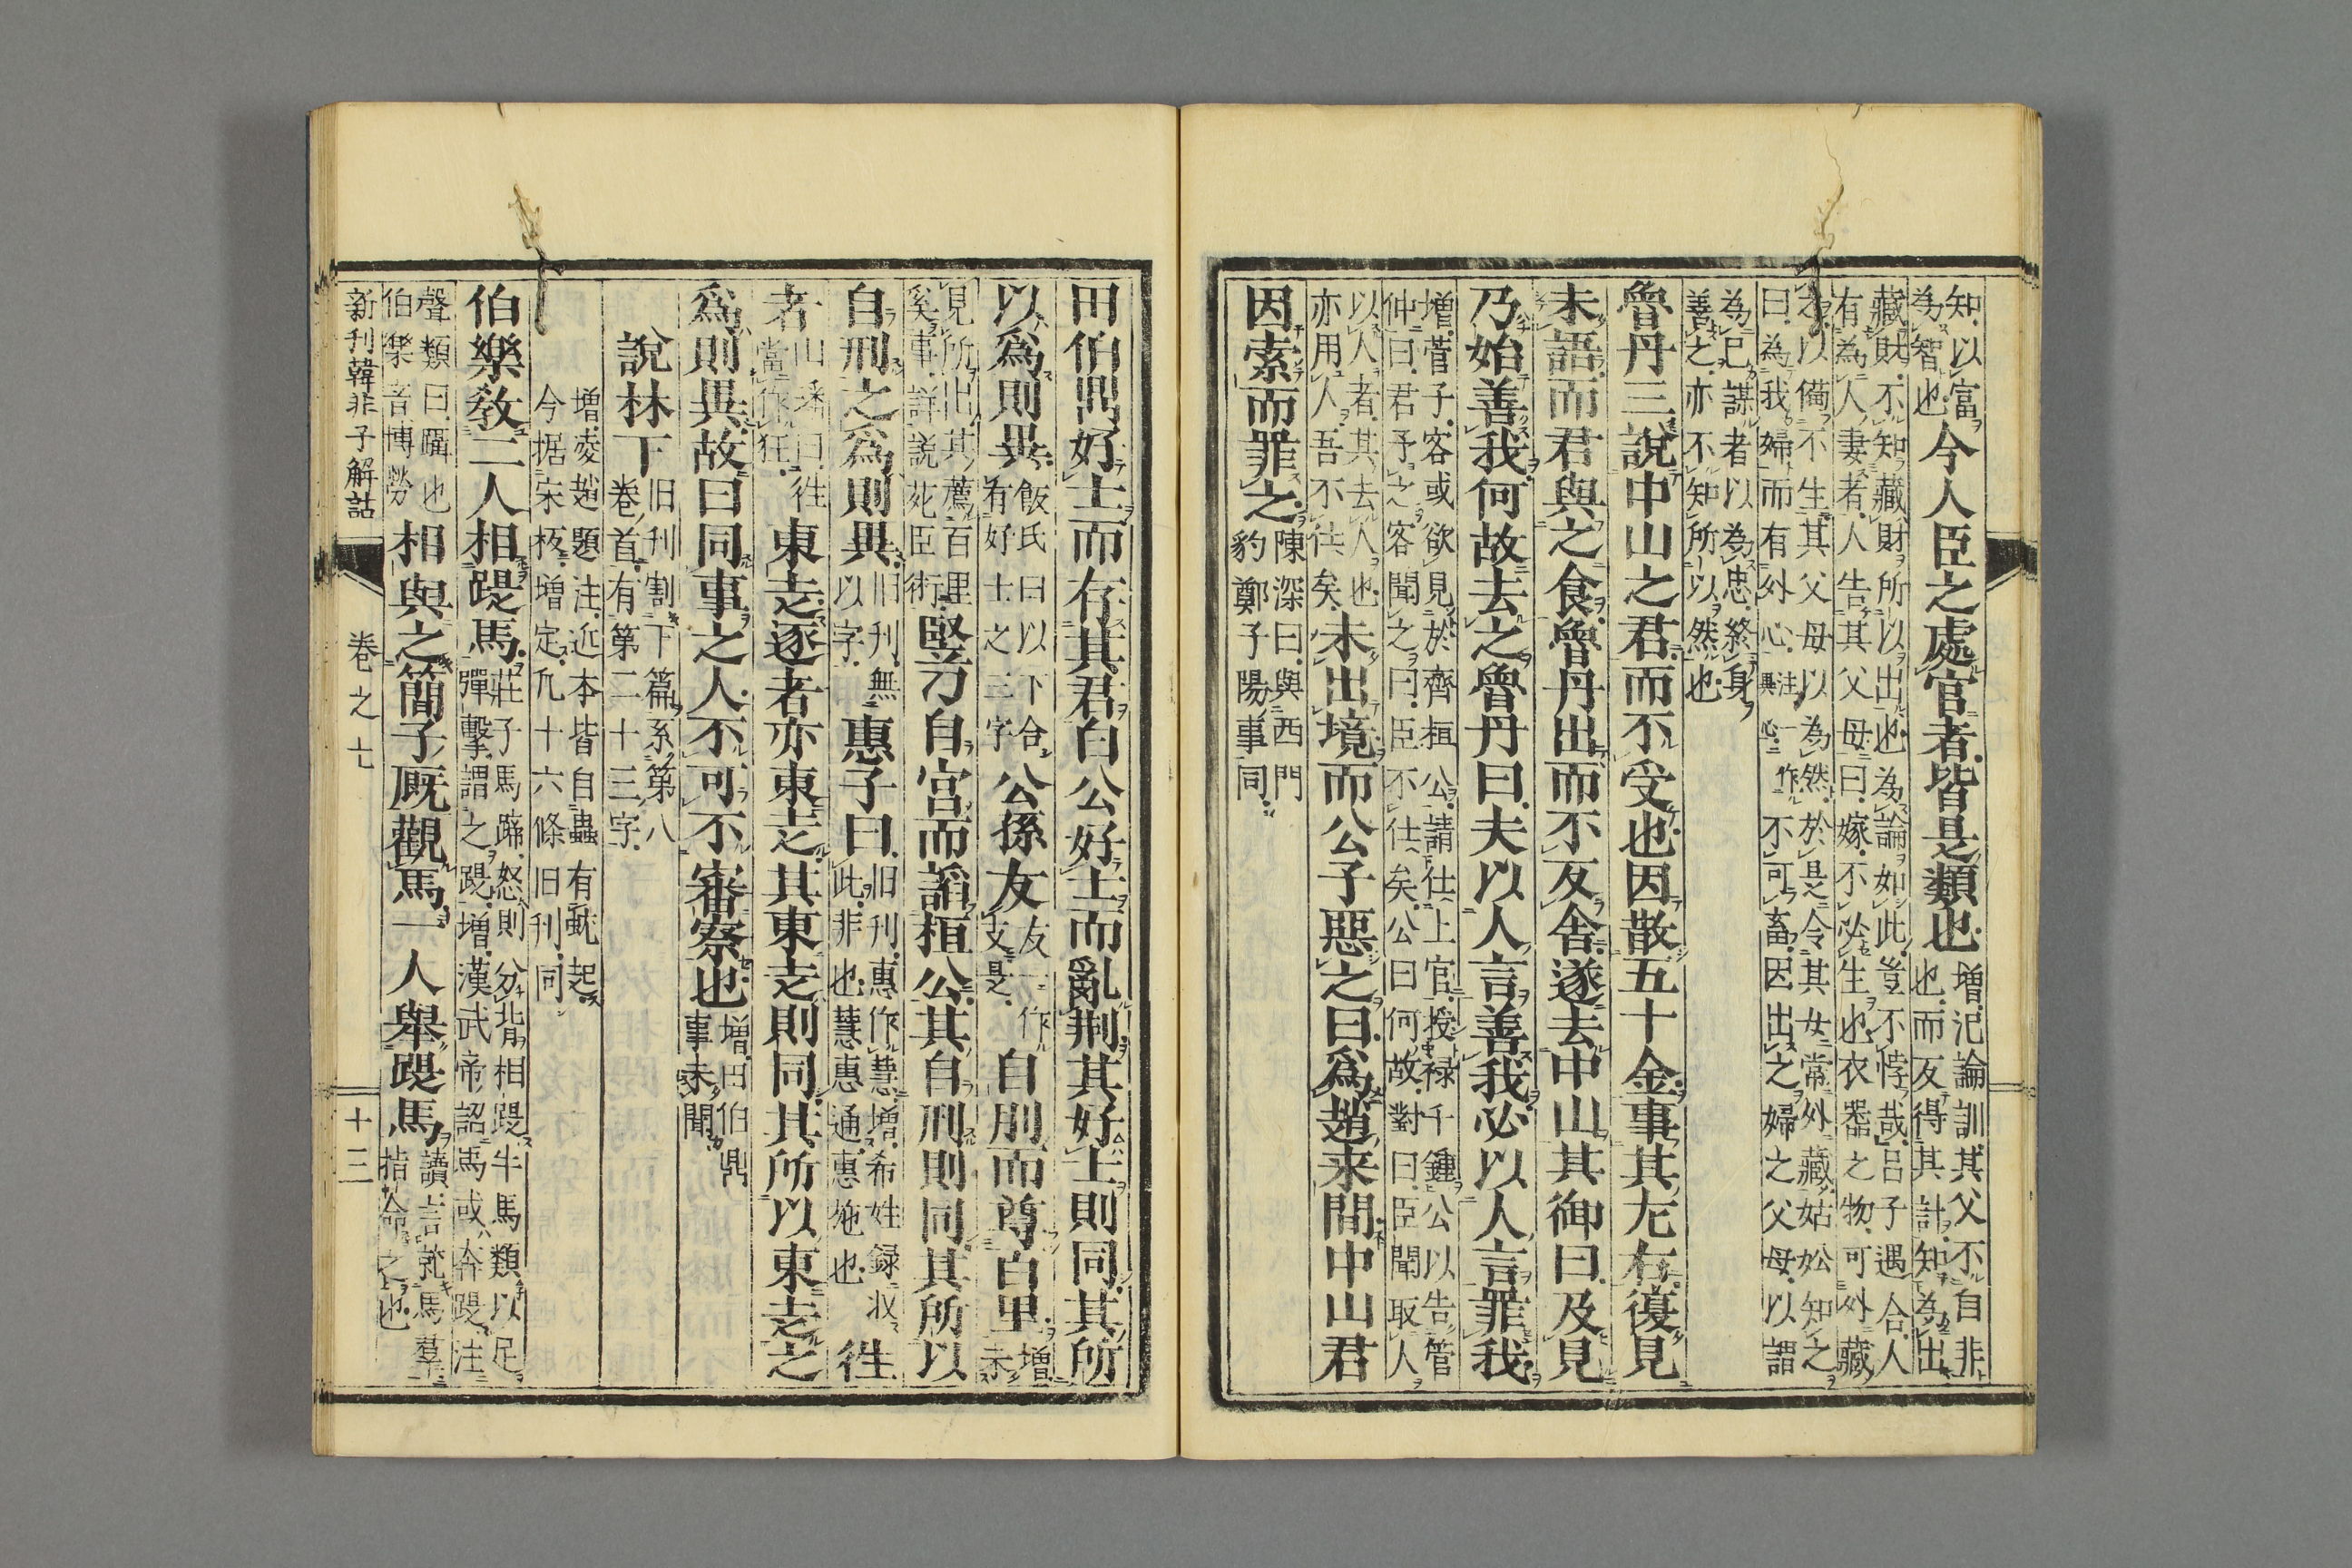 知以富
爲智也今人臣之處官者皆是類也
增氾論訓其父不自非
也而反得其計知為出
藏財不知藏財所以出也為論如此豈不悖哉呂子遇合人
有為人妻者人告其父母曰嫁不必生也衣器之物可外藏
之以備不生其父母以為然於是令其女常外藏姑妐知之
曰為我婦而有外心不可畜因出之婦之父母以謂
為己謀者以為忠終身
善之亦不知所以然也
魯丹三說中山之君而不受也因散五十金事其左右復見
未語而君與之食魯丹出而不反舍遂去中山其御曰及見
乃始善我何故去之魯丹曰夫以人言善我必以人言罪我
增管子客或欲見於齊桓公請仕上官授祿千鍾公以告管
仲曰君予之客聞之曰臣不仕矣公曰何故對曰臣聞取人
以人者其去人也
亦用人吾不仕矣
未出境而公子惡之曰爲趙来間中山君
因索而罪之
陳深曰與西門
豹鄭子陽事同
田伯鼎好士而存其君白公好士而亂荆其好士則同其所
以爲則異
飯氏曰以下合
有好士之三字
公孫友
友一作
文是
自刖而尊百里
增未
見所出其薦百里
奚事詳說苑臣術
豎刁自宮而諂桓公其自刑則同其所以
自刑之爲則異
旧刊無
以字
惠子曰
旧刊惠作慧增希姓録収
此非也慧惠通惠施也
徃
者
山
當作狂
東走逐者亦東走其東走則同其所以東走之
爲則異故曰同事之人不可不審察也
增田伯鼎
事未聞
說林下
旧刊割下篇系第八
卷首有第二十三字
增凌趙題注近本皆自蟲有虺起
今据宋板增定凡十六條旧刊同
伯樂敎二人相踶馬
莊子馬蹄怒則分背相踶牛馬類以足
彈擊謂之踶增漢武帝詔馬或奔踶注
聲類曰躡也
伯樂音博勞
相與之簡子厩觀馬一人舉踶馬
讀言就馬羣
指命之也
新刊韓非子解詁
卷之七
十三